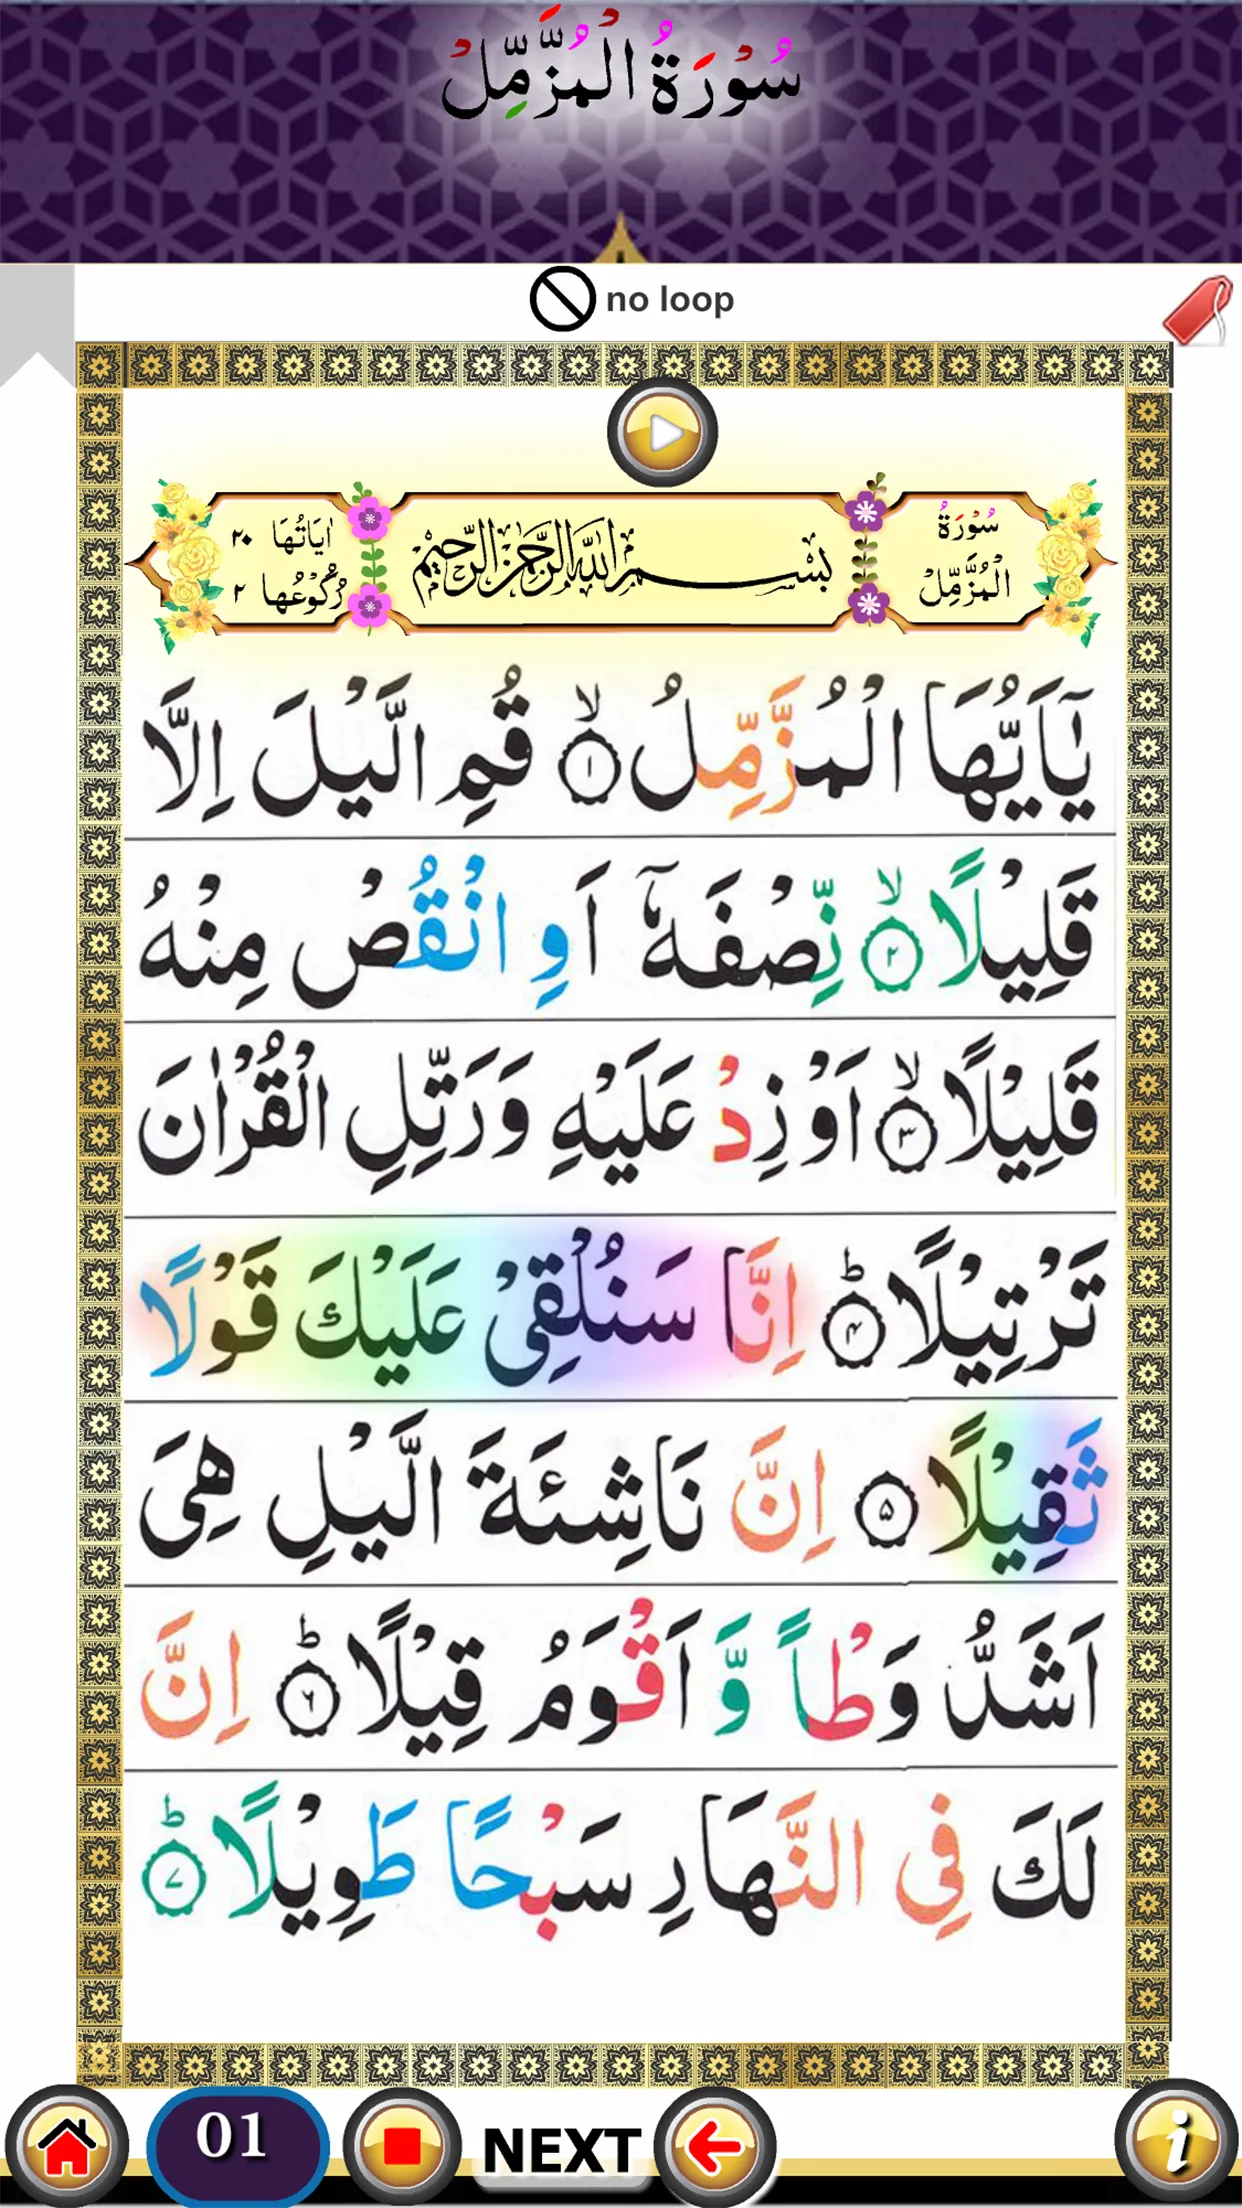 سُوْرَةُ الْمُزَّمِّلْ
no loop
سُوْرَةُ الْمُزَّمِّلْ
بِسْمِ اللهِ الرَّحْمٰنِ الرَّحِيْمِ
اٰيَاتُهَا ٢٠
رُكُوْعُهَا ٢
يٰۤاَيُّهَا الْمُزَّمِّلُ ۙ﴿۱﴾ قُمِ الَّيْلَ اِلَّا
قَلِيْلًا ۙ﴿۲﴾ نِّصْفَهٗۤ اَوِ انْقُصْ مِنْهُ
قَلِيْلًا ۙ﴿۳﴾ اَوْ زِدْ عَلَيْهِ وَرَتِّلِ الْقُرْاٰنَ
تَرْتِيْلًا ؕ﴿۴﴾ اِنَّا سَنُلْقِيْ عَلَيْكَ قَوْلًا
ثَقِيْلًا ﴿۵﴾ اِنَّ نَاشِئَةَ الَّيْلِ هِيَ
اَشَدُّ وَطْاً وَّ اَقْوَمُ قِيْلًا ؕ﴿۶﴾ اِنَّ
لَكَ فِي النَّهَارِ سَبْحًا طَوِيْلًا ؕ﴿۷﴾
01 NEXT i